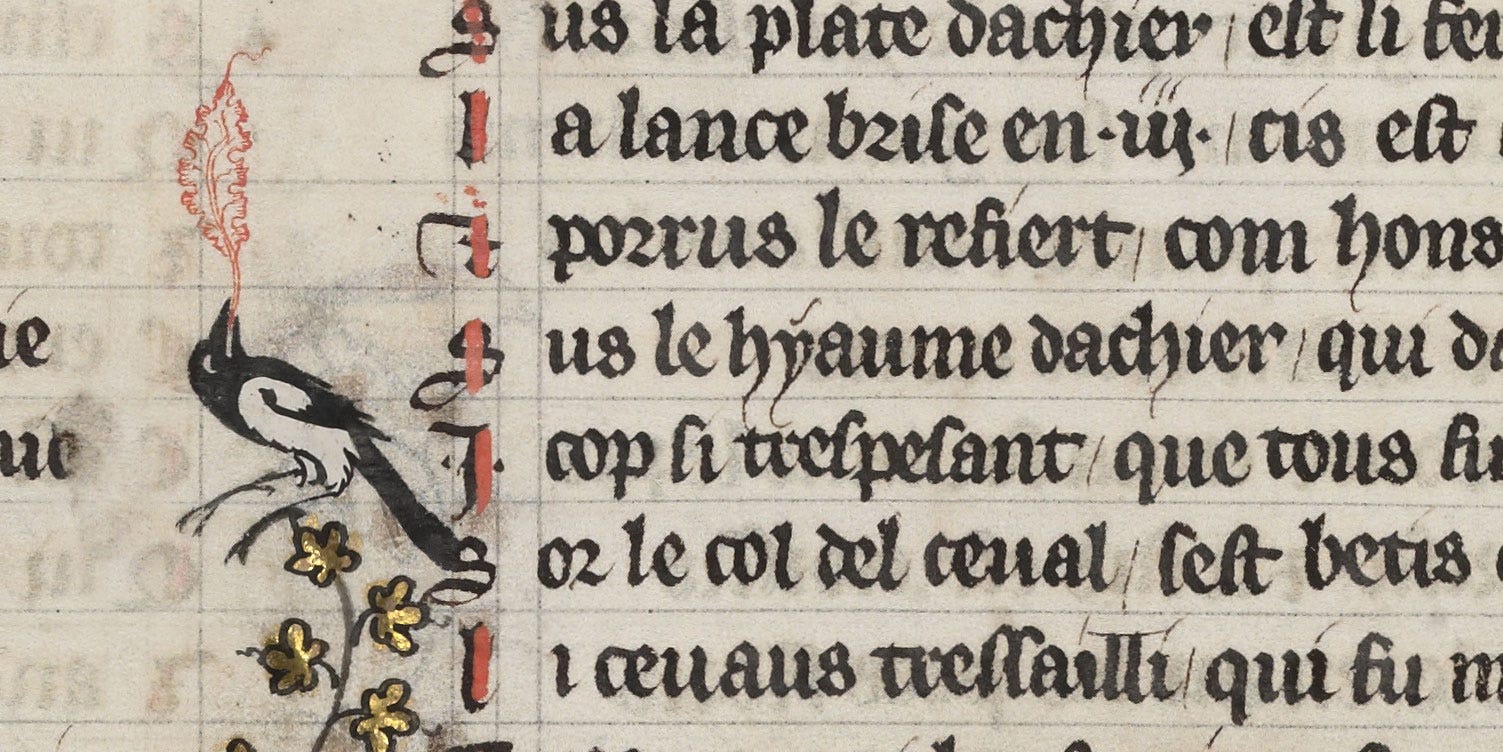 Sus la plate dachier / est li feu
La lance brise en ·iij· / cis est
Et porrus le refiert / com hons
Sus le hyaume dachier / qui da
·I· cop si trespesant / que tous fu
Sor le col del ceual / sest betis
Li ceuaus tressailli / qui fu m
ie